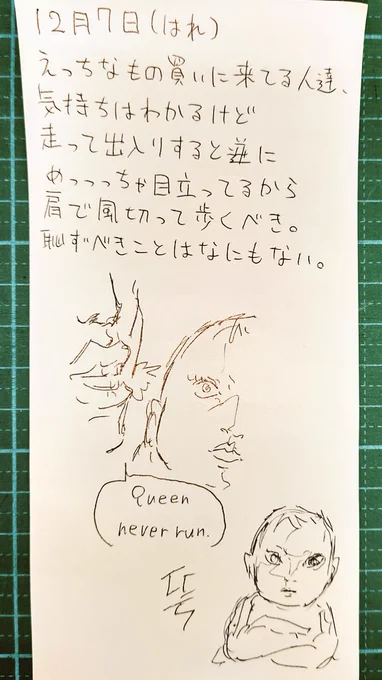 12月7日(はれ)
えっちなもの買いに来てる人達、
気持ちはわかるけど
走って出入りすると逆に
めっっっちゃ目立ってるから
肩で風切って歩くべき。
恥ずべきことはなにもない。
Queen
never run.
뚝